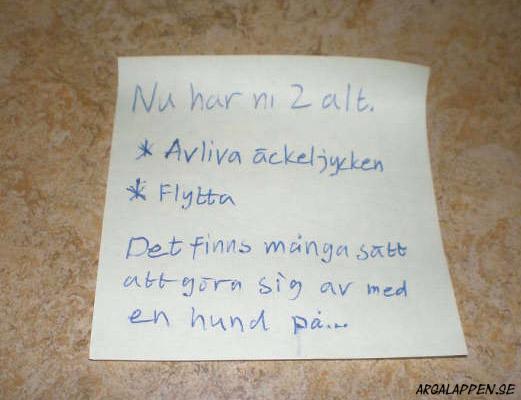 Nu har ni 2 alt.
* Avliva äckeljycken
* Flytta
Det finns många sätt
att göra sig av med
en hund på...
ARGALAPPEN.SE